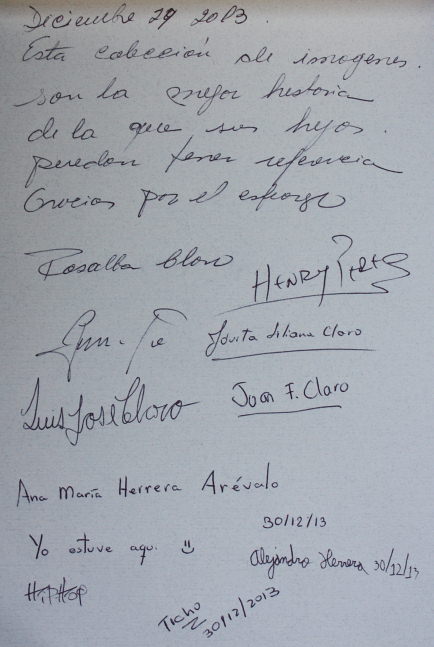 Diciembre 29 2013.
Esta colección de imagenes.
son la mejor historia
de la que sus hijos.
puedan tener referencia
Gracias por el esfuerzo
Rosalba Claro
HENRY PEREZ
Jovita Liliana Claro
Luis José Claro
Juan F. Claro
Ana María Herrera Arévalo
30/12/13
Yo estuve aqui. ☺
Alejandro Herrera 30/12/13
HipHop
Ticho
30/12/2013